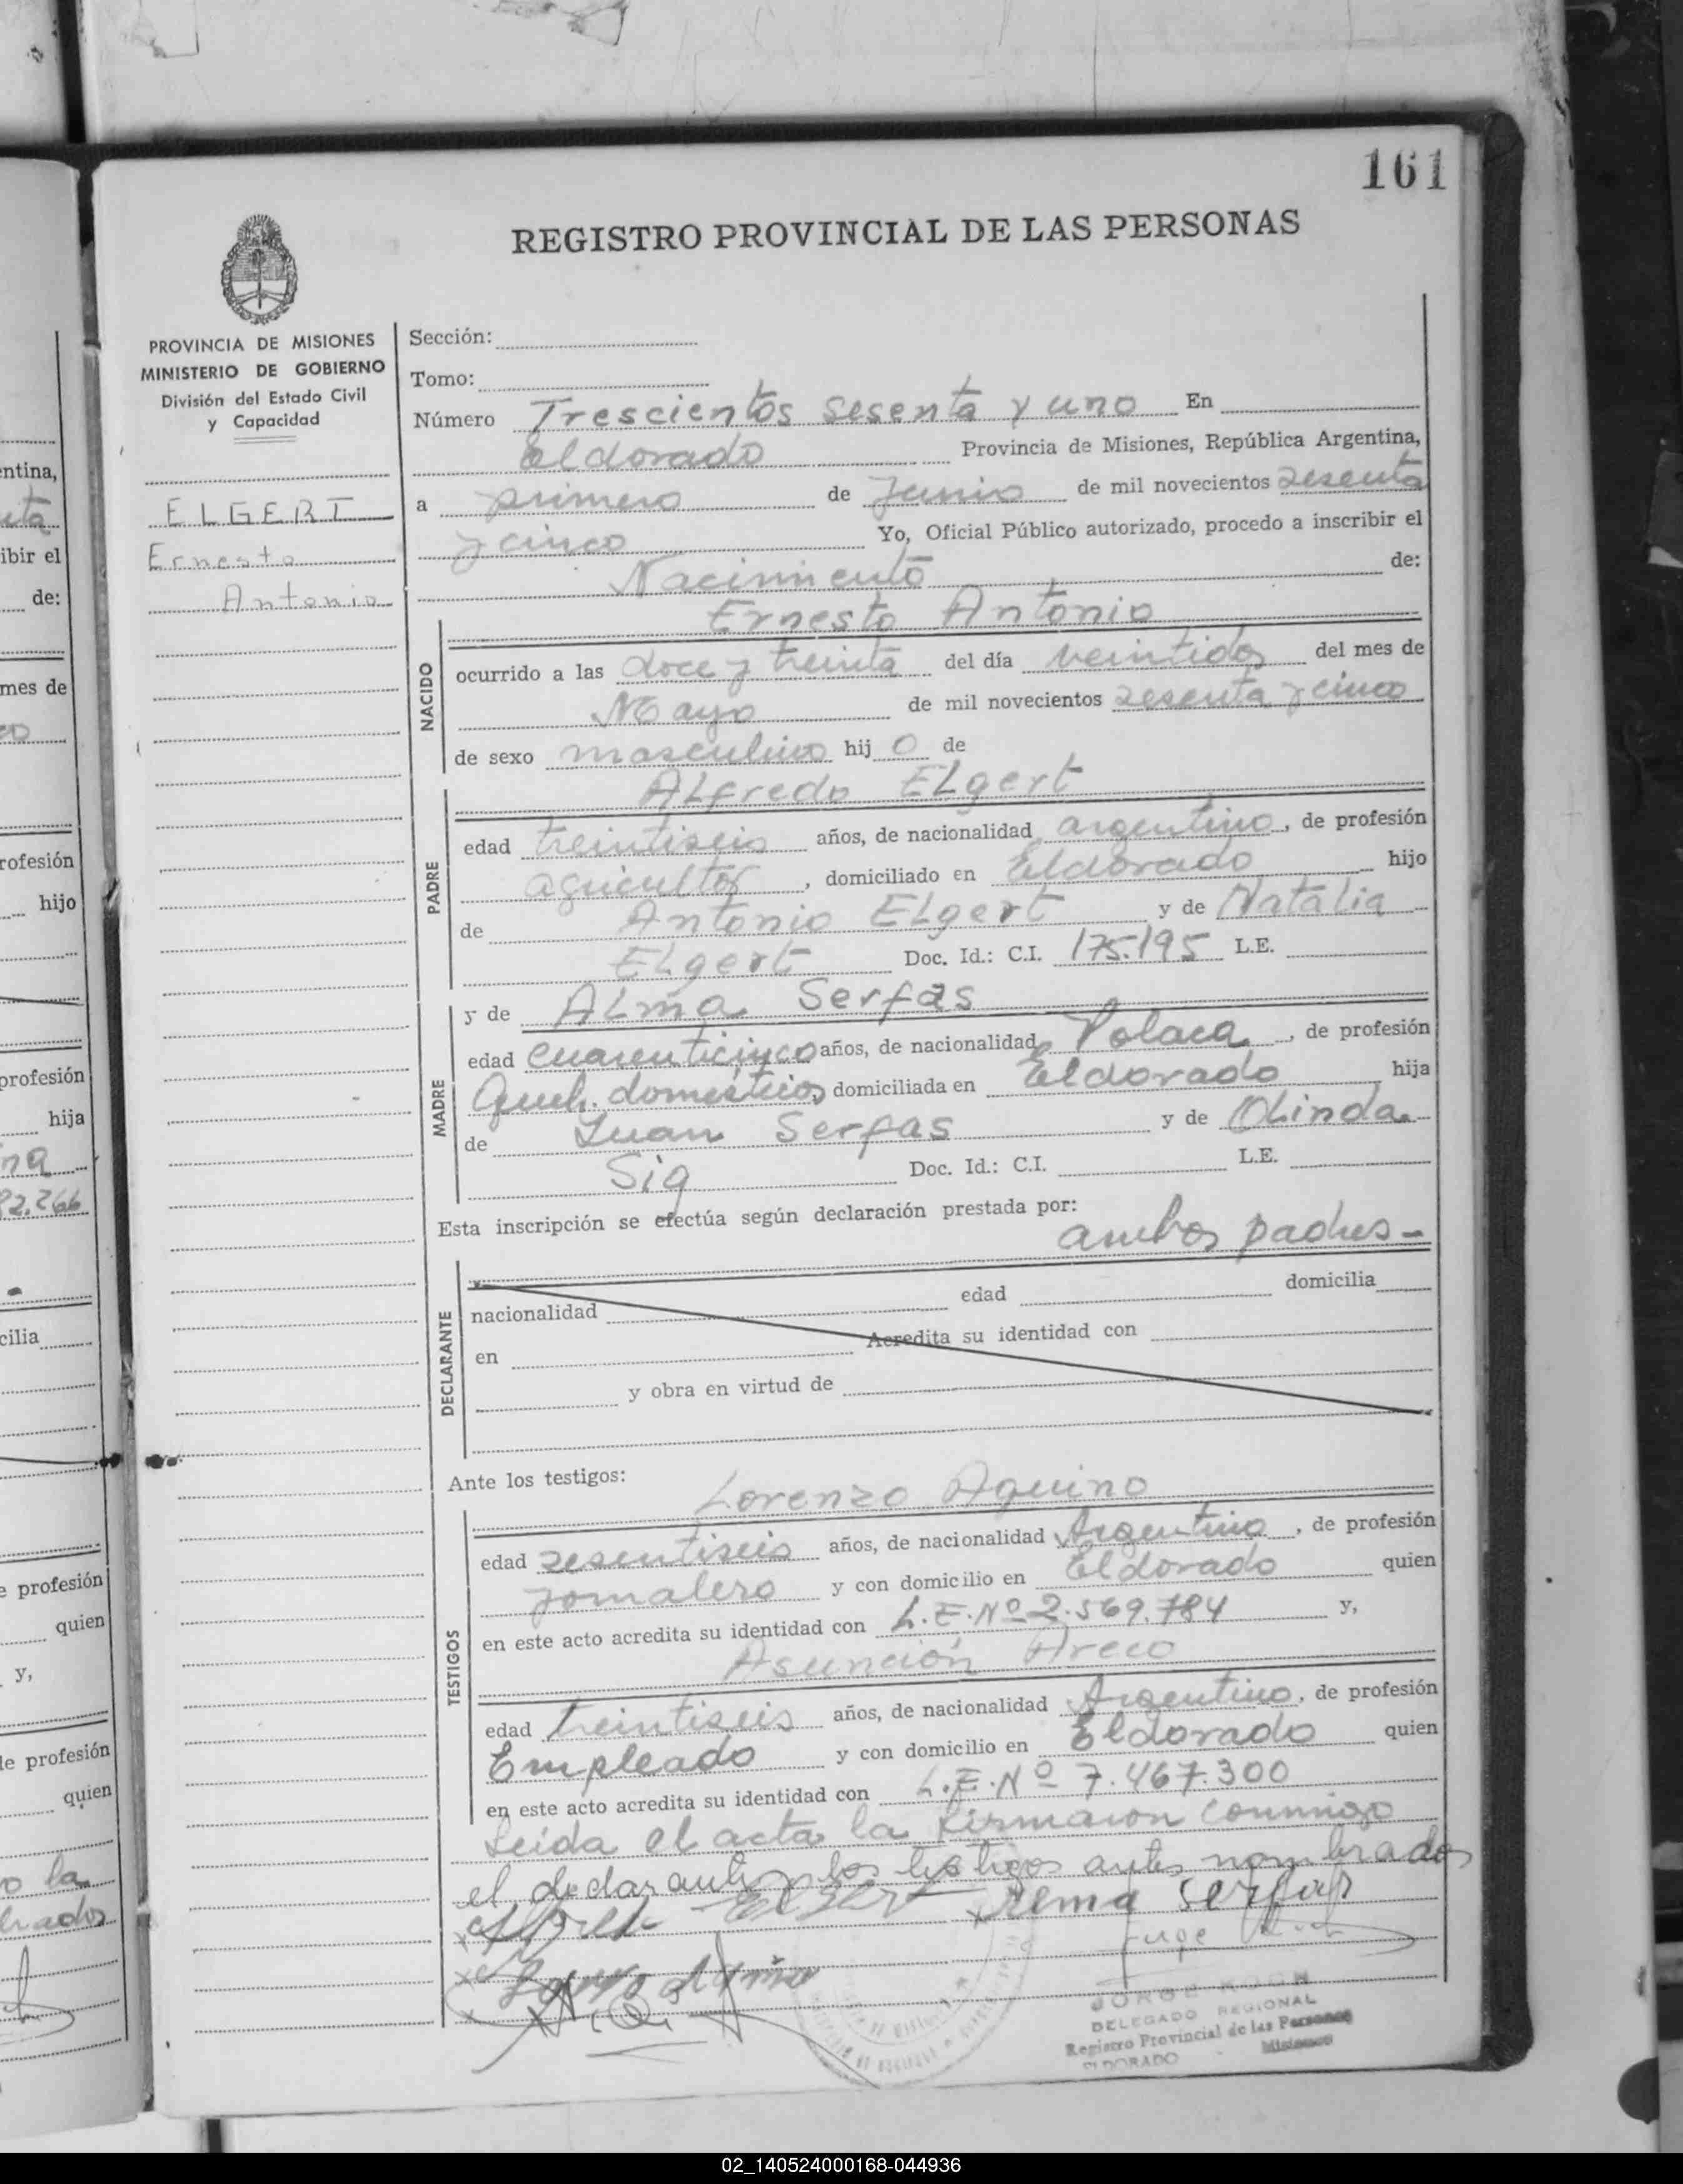 161
REGISTRO PROVINCIAL DE LAS PERSONAS
PROVINCIA DE MISIONES
MINISTERIO DE GOBIERNO
División del Estado Civil
y Capacidad
ELGERT
Ernesto
Antonio
Sección:
Tomo:
Número Trescientos sesenta y uno En
Eldorado Provincia de Misiones, República Argentina,
a primero de Junio de mil novecientos sesenta
y cinco Yo, Oficial Público autorizado, procedo a inscribir el
Nacimiento de:
Ernesto Antonio
NACIDO
ocurrido a las doce y treinta del día veintidos del mes de
Mayo de mil novecientos sesenta y cinco
de sexo masculino hijo de
ALfredo ELgert
PADRE
edad treintiseis años, de nacionalidad argentino, de profesión
agricultor, domiciliado en Eldorado hijo
de Antonio ELgert y de Natalia
ELgert Doc. Id.: C.I. 175.195 L.E.
y de ALma Serfas
MADRE
edad cuarenticinco años, de nacionalidad Polaca, de profesión
Queh. domésticos domiciliada en Eldorado hija
de Juan Serfas y de OLinda
Sig Doc. Id.: C.I. L.E.
Esta inscripción se efectúa según declaración prestada por:
ambos padres -
DECLARANTE
edad domicilia
nacionalidad
en Acredita su identidad con
y obra en virtud de
Ante los testigos:
Lorenzo Aquino
TESTIGOS
edad sesentiseis años, de nacionalidad Argentino, de profesión
Jornalero y con domicilio en Eldorado quien
en este acto acredita su identidad con L.E.Nº 2.569.784 y,
Asunción Areco
edad treintiseis años, de nacionalidad Argentino, de profesión
Empleado y con domicilio en Eldorado quien
en este acto acredita su identidad con L.E.Nº 7.467.300
Leida el acta la firmaron conmigo
el declarante y los testigos antes nombrados
Elgert Serfas
JORGE KOCH
DELEGADO REGIONAL
Registro Provincial de las Personas
ELDORADO Misiones
ntina,
ibir el
de:
mes de
rofesión
hijo
profesión
hija
na
92.266
cilia
e profesión
quien
y,
le profesión
quien
o la
brados
02_140524000168-044936